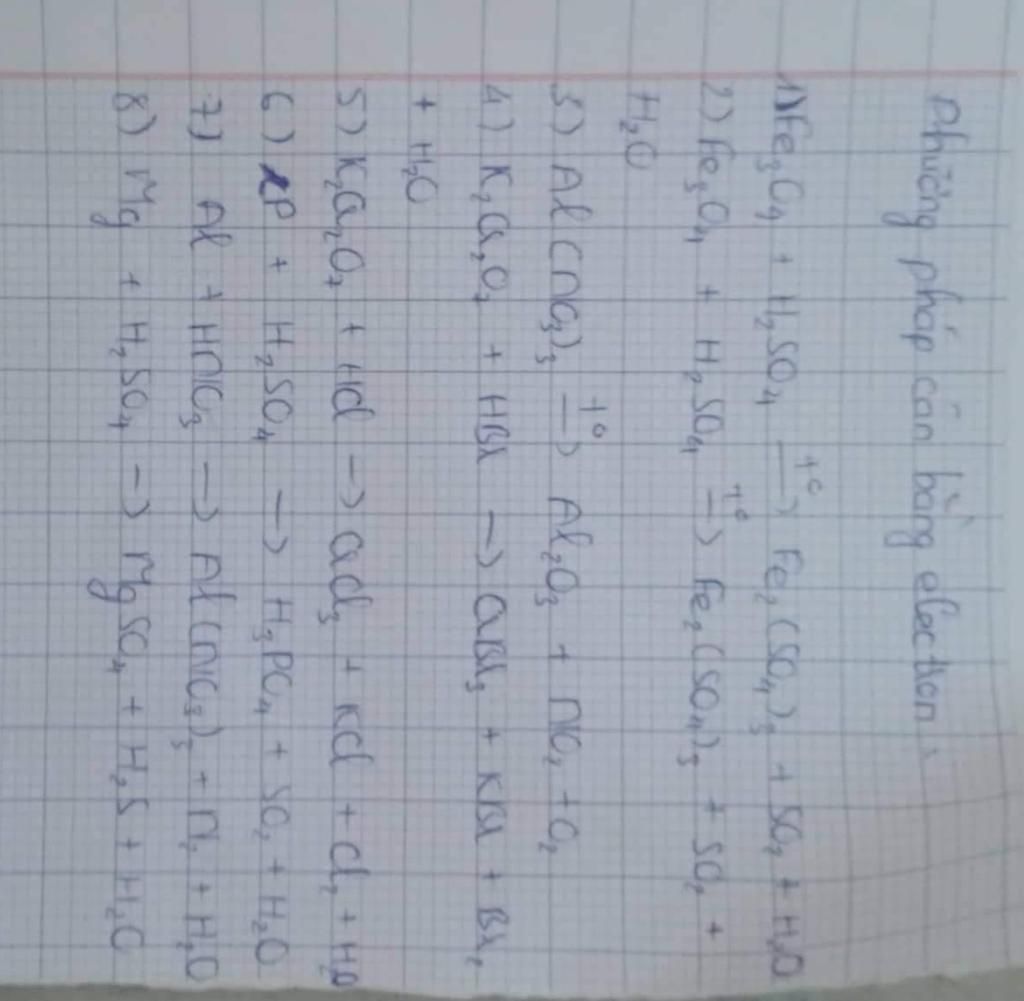 Phương pháp cân bằng electron
1) Fe3O4 + H2SO4 —t°→ Fe2(SO4)3 + SO2 + H2O
2) Fe3O4 + H2SO4 —t°→ Fe2(SO4)3 + SO2 +
H2O
3) Al(NO3)3 —t°→ Al2O3 + NO2 + O2
4) K2Cr2O7 + HBr → CrBr3 + KBr + Br2
+ H2O
5) K2Cr2O7 + HCl → CrCl3 + KCl + Cl2 + H2O
6) P + H2SO4 → H3PO4 + SO2 + H2O
7) Al + HNO3 → Al(NO3)3 + N2 + H2O
8) Mg + H2SO4 → MgSO4 + H2S + H2O